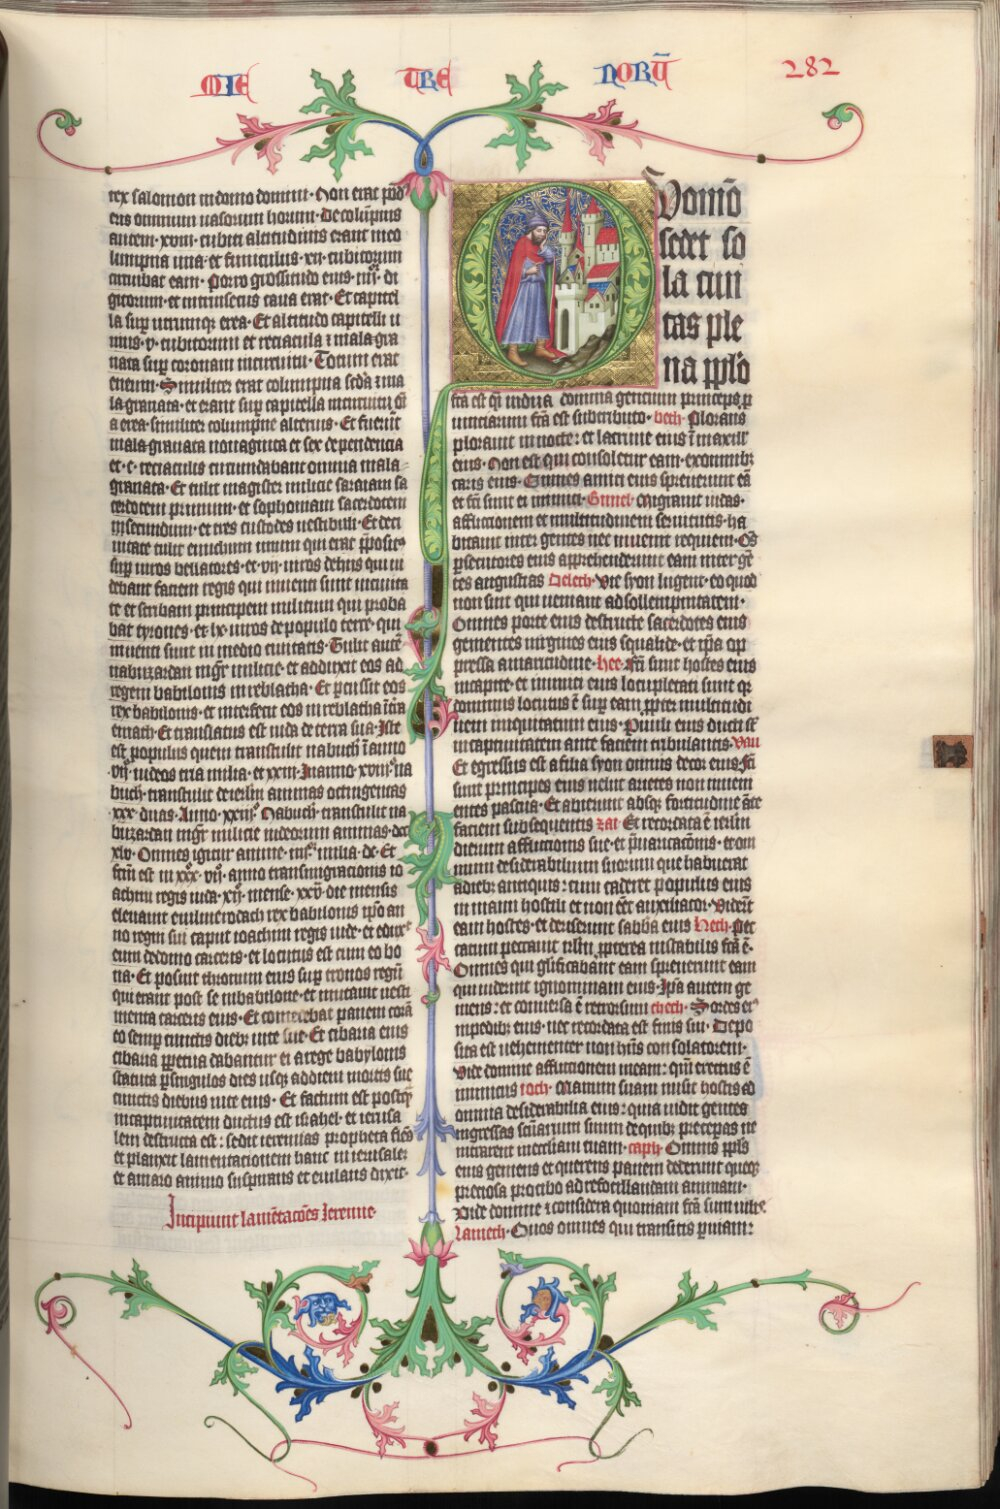 TRE
NORU̅
282
rex salomon in domo domini · Non erat po̅d
eris omnium uasorum horum · De colu̅pnis
autem · xviii · cubiti altitudinis erant in co
lumpna una · et funiculus · xii · cubitorum
circuibat eam · Porro grossitudo eius · iiii · di
gitorum · et intrinsecus caua erat · Et capitel
la sup utramq; erea · Et altitudo capitelli u
nius · v · cubitorum et reciacula ⁊ mala gra
nata sup coronam in circuitu · Totum erat
eneum · Similiter erat columpna scda ⁊ ma
la granata · et erant sup capitella in circuitu o̅i
a erea · similiter columpne alterius · Et fuer̅t
mala granata nonaginta et sex dependencia
et · c · reciaculis circumdabant omnia mala
granata · Et tulit magister milicie saraiam sa
cerdotem primum · et sophoniam sacerdotem
in secundum · et tres custodes uestibuli · Et de ci
uitate tulit eunuchum unum qui erat p̅posit9
sup uiros bellatores · et · vii · uiros de hiis qui ui
debant faciem regis qui inuenti sunt in ciuita
te et scribam principem militum qui proba
bat tyrones · et · lx · uiros de populo terre · qui
inuenti sunt in medio ciuitatis · Tulit aute̅
nabuzardan mgr̅ milicie · et adduxit eos ad
regem babilonis in reblatha · Et p̱cussit eos
rex babilonis · et interfecit eos in reblatha i̅ t̅ra
emath · Et translatus est iuda de terra sua · Iste
est populus quem transtulit nabuch̅ i̅ anno
vii̊ iudeos tria milia · et xxiii · In anno xviii̊ na
buch̅ transtulit de ierl̅m animas octingentas
xxx duas · Anno · xxiii̊ · Nabuch̅ · transtulit na
buzardan mgr̅ milicie iudeorum animas · dcc
xlv · Omnes igitur anime · iiii̊ʳ milia · dc · Et
fc̅m est in xxx̊ vii̊ · anno transmigracionis io
achim regis iuda · xii̊ · mense · xxv̊ · die mensis
eleuauit euilmerodach rex babilonis ip̅o an
no regni sui caput ioachim regis iude · et edux̅t
eum de domo carceris · et locutus est cum eo bo
na · Et posuit thronum eius sup tronos regu̅
qui erant post se in babilone · et mutauit uesti
menta carceris eius · Et comedebat panem cora̅
eo semp cunctis dieb; uite sue · Et cibaria eius
cibaria p̱petua dabantur ei a rege babylonis
statuta p̱ singulos dies usq; ad diem mortis sue
cunctis diebus uite eius · Et factum est postq̅
in captiuitatem ductus est israhel · et ierusa
lem destructa est : sedit ieremias propheta fle̅s
et planxit lamentacionem hanc in ierusale̅
et amaro animo suspirans et eiulans dixit ·
Incipiunt lame̅tac̅o̅es Jeremie ·
Quomo̅
sedet so
la ciui
tas ple
na pp̅lo
fc̅a est q̅i uidua domina gencium princeps p̱
uinciarum fc̅a est sub tributo · beth · Plorans
plorauit in nocte : et lacrime eius i̅ maxill̅
eius · Non est qui consoletur eam · ex omnib;
caris eius · Omnes amici eius spreuerunt ea̅
et fc̅i sunt ei inimici · Gimel · Migrauit iudas ·
afflictionem et multitudinem seruitutis · ha
bitauit inter gentes nec inuenit requiem · O̅s
p̱secutores eius apprehenderunt eam inter ge̅
tes angustias Deleth · Vie syon lugent · eo quod
non sint qui ueniant ad sollempnitatem ·
Omnes porte eius destructe sacerdotes eius
gementes uirgines eius squalide · et ip̅a op
pressa amaritudine · hee · Fc̅i sunt hostes eius
in capite · et inimici eius locupletati sunt qr
dominus locutus e̅ sup eam p̱pter multitudi
nem iniquitatum eius · P̱uuli eius ducti s̅t
in captiuitatem ante faciem tribulantis · Vau
Et egressus est a filia syon omnis decor eius · Fc̅i
sunt principes eius uelut arietes non inueni
entes pascua · Et abierunt absq; fortitudine a̅te
faciem subsequentis zai · Et recordata e̅ ierl̅m
dierum afflictionis sue · et p̅uaricac̅o̅nis · et om
nium desiderabilium suorum que habuerat
a dieb; antiquis : cum caderet populus eius
in manu hostili et non e̅et auxiliator · Vider̅t
eam hostes · et deriserunt sabba̅ eius heth · Pec
catum peccauit irl̅m p̱pterea instabilis fc̅a e̅ ·
Omnes qui gl̅ificabant eam spreuerunt eam
qui uiderunt ignominiam eius · Ip̅a autem ge
mens : et conuersa e̅ retrorsum theth · Sordes ei9
in pedib; eius · nec recordata est finis sui · Depo
sita est uehementer non hn̅s consolatorem ·
Vide domine afflictionem meam : qm̅ erectus e̅
inimicus ioth · Manum suam misit hostis ad
omnia desiderabilia eius : quia uidit gentes
ingressas s̅c̅uarium suum de quib; preceperas ne
intrarent in eccl̅iam tuam · caph · Omnis pp̅ls
eius gemens et querens panem dederunt queq;
preciosa pro cibo ad refocillandam animam ·
Vide domine ⁊ considera quoniam fc̅a sum uilis
Lameth · O uos omnes qui transitis p̱ uiam :